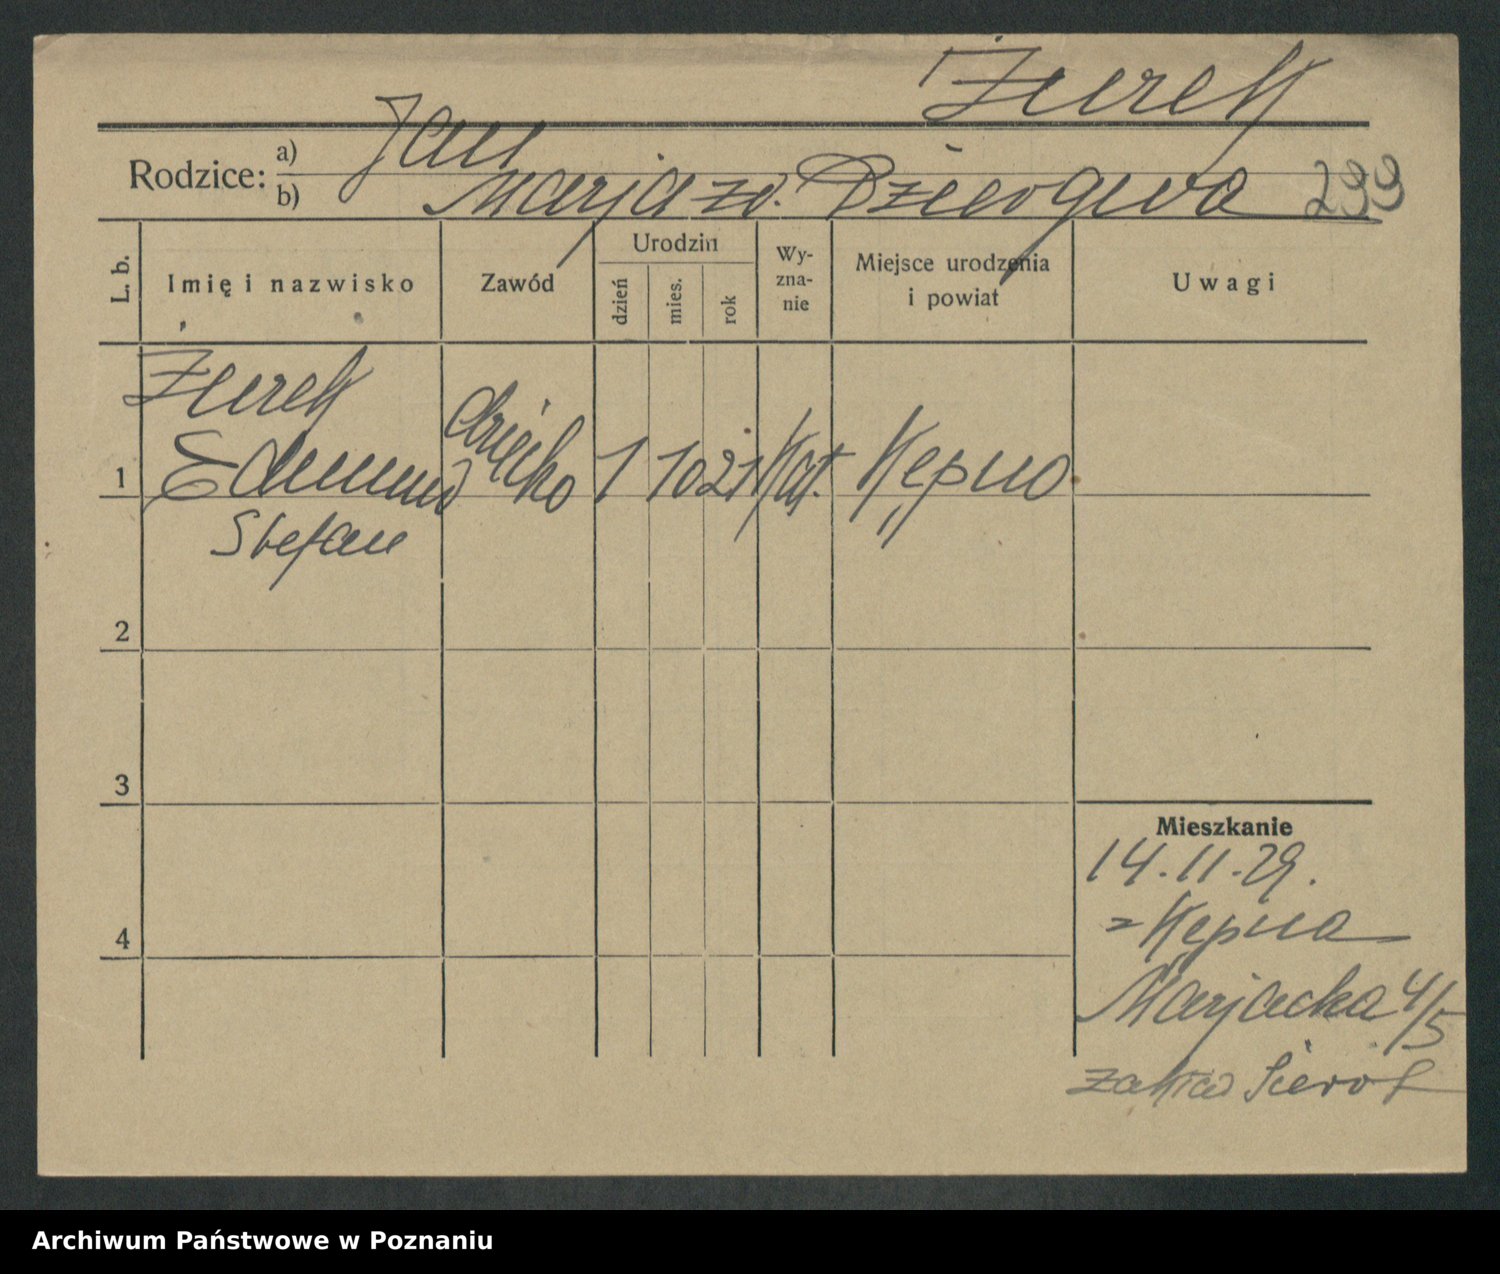 Żurek
Rodzice: a) Jan
b) Marja zd. 299
L. b. Imię i nazwisko Zawód Urodzin dzień mies. rok Wy-zna-nie Miejsce urodzenia i powiat Uwagi
Żurek
1 Edmund dziecko 1 10 21 Kat. Kępno
Stefan
2
3
Mieszkanie
14.11.29.
z Kępna
4
Marjacka 4/5
Zakład Sierot
Archiwum Państwowe w Poznaniu